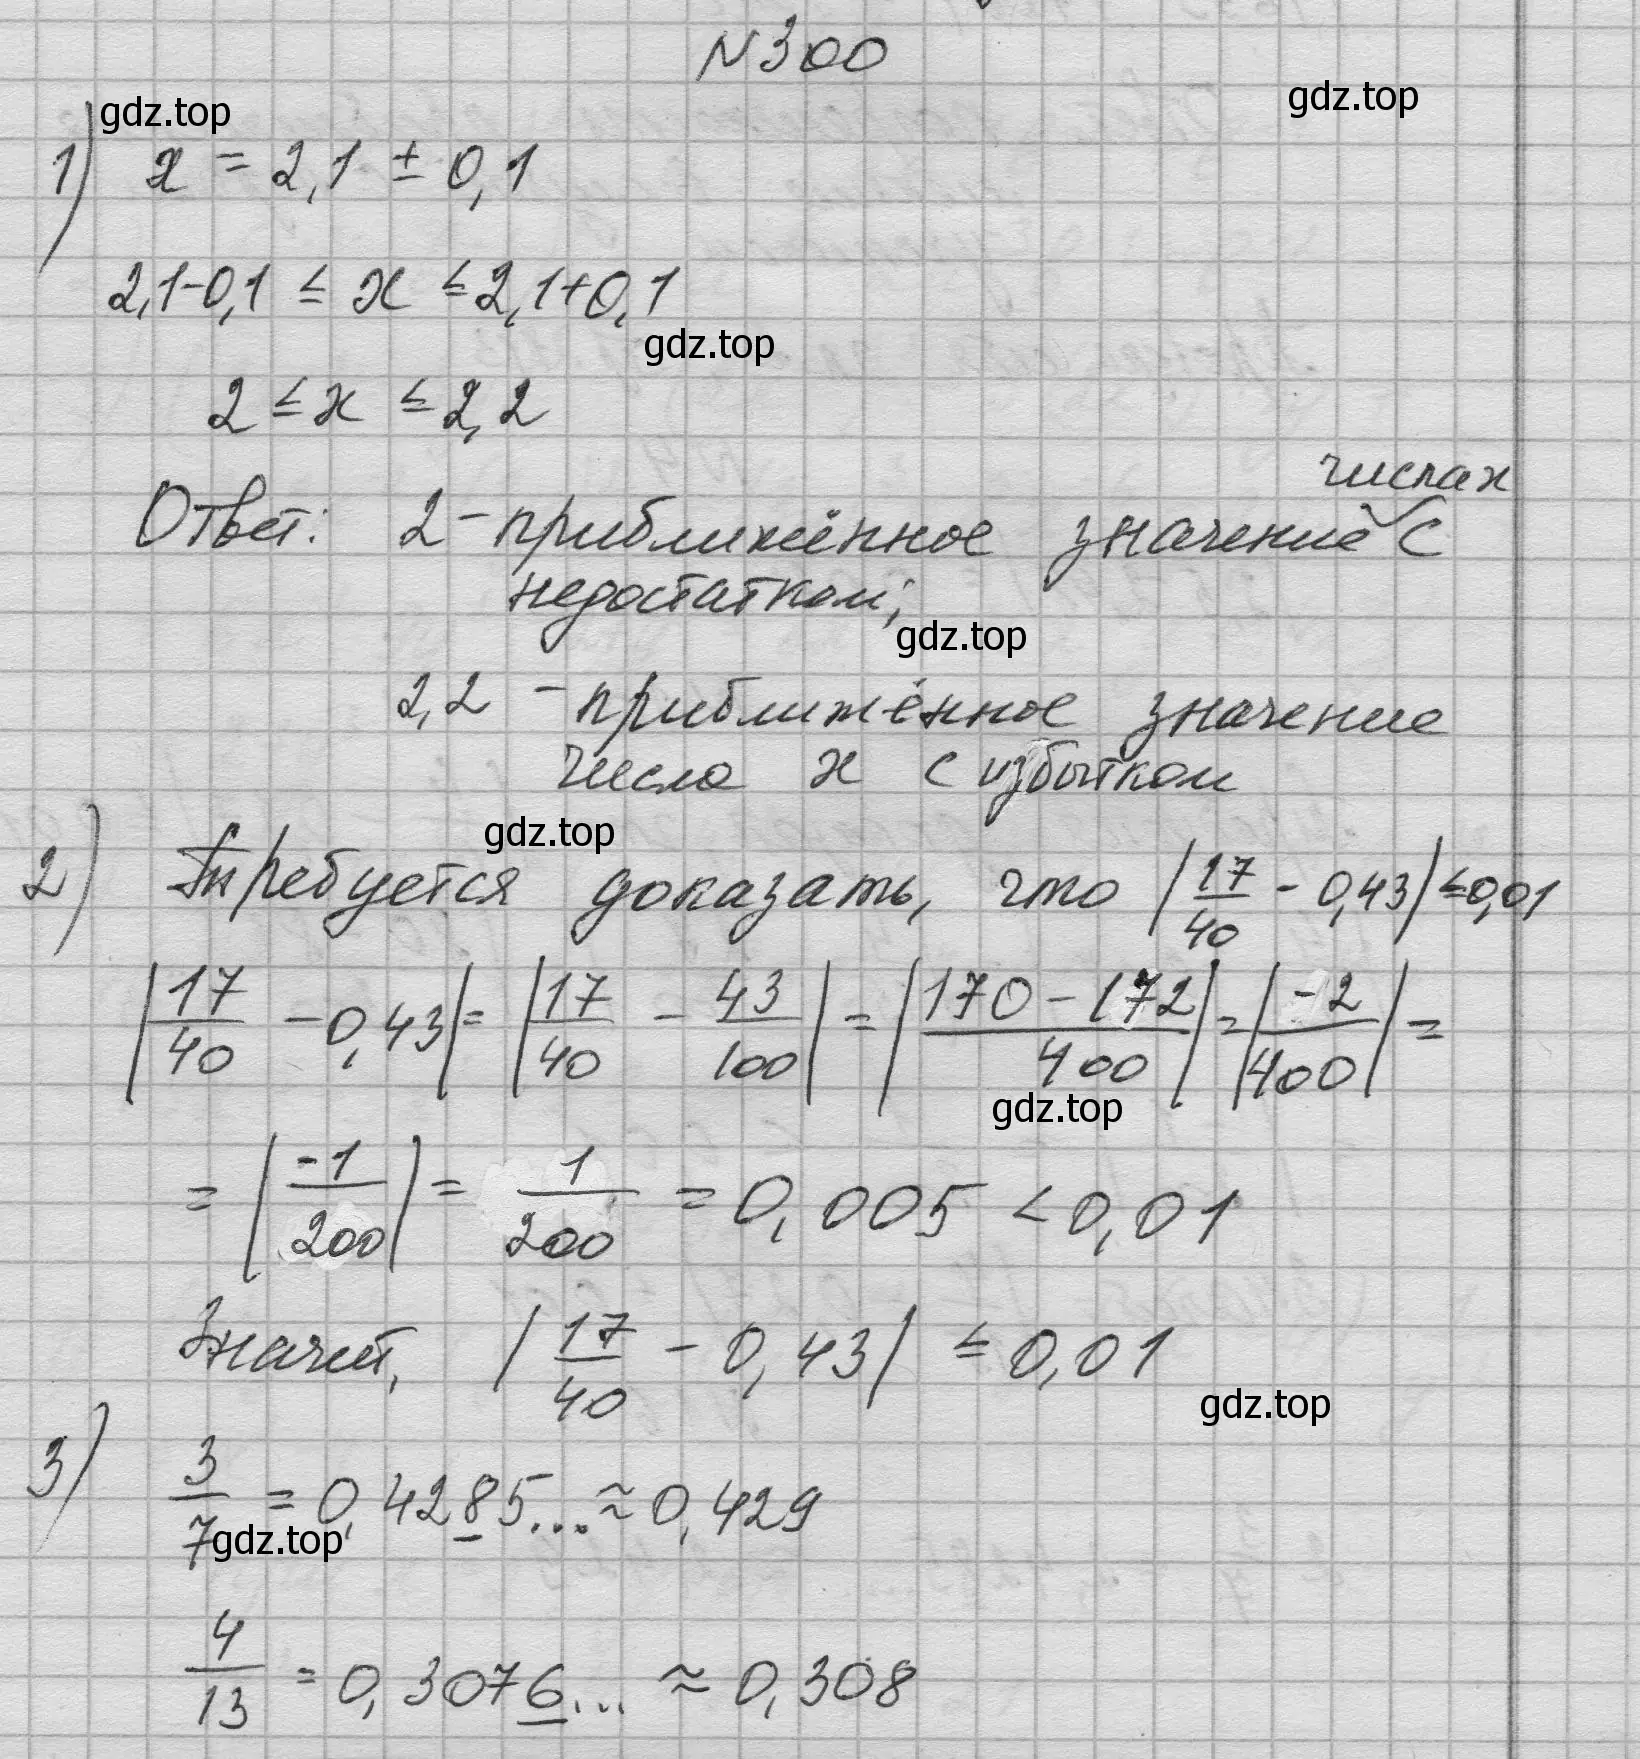 N300
gdz.top
gdz.top
1) x = 2,1 ± 0,1
2,1-0,1 ≤ x ≤ 2,1+0,1
gdz.top
2 ≤ x ≤ 2,2
числа x
Ответ: 2 - приближённое значение ˅ с
недостатком;
gdz.top
2,2 - приближённое значение
числа x с избытком
gdz.top
2) Требуется доказать, что |17/40 - 0,43| ≤ 0,01
|17/40 - 0,43| = |17/40 - 43/100| = |170 - 172/400| = |-2/400| =
gdz.top
= |-1/200| = 1/200 = 0,005 < 0,01
Значит, |17/40 - 0,43| ≤ 0,01
gdz.top
3) 3/7 = 0,4285... ≈ 0,429
gdz.top
4/13 = 0,3076... ≈ 0,308